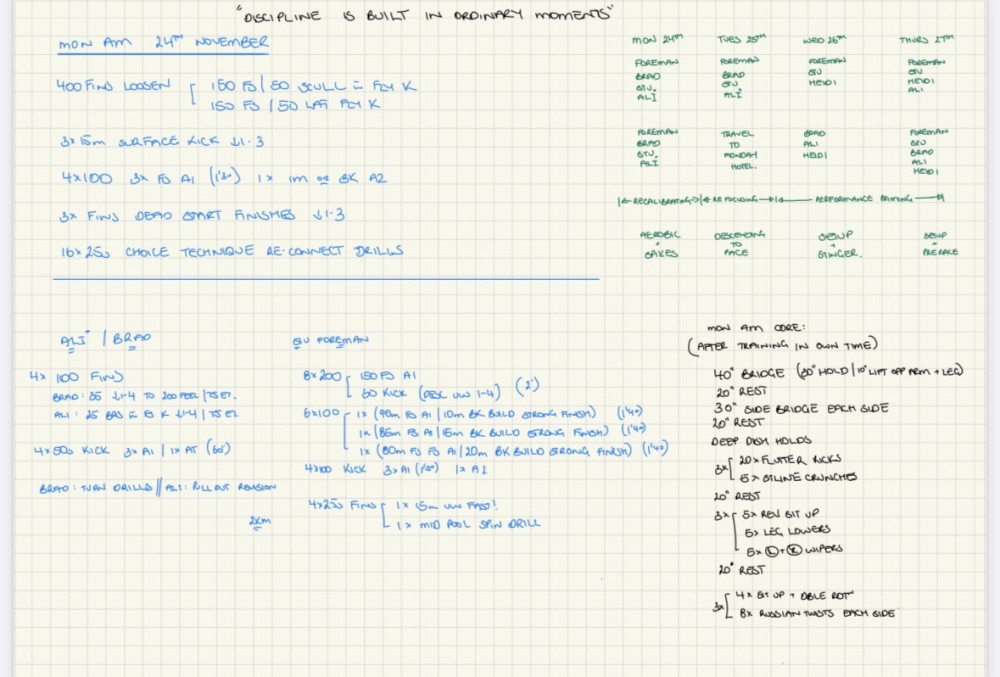 "DISCIPLINE IS BUILT IN ORDINARY MOMENTS"
MON AM 24TH NOVEMBER
400 FINS LOOSEN [ 150 FS / 50 SCULL = FLY K
150 FS / 50 LAT FLY K
3x 15m SURFACE KICK ↓1-3
4x100 3x FS A1 (1'30) 1x IM OR BK A2
3x FINS DEAD START FINISHES ↓1-3
16x25s CHOICE TECHNIQUE RE-CONNECT DRILLS
MON 24TH TUES 25TH WED 26TH THURS 27TH
FOREMAN FOREMAN FOREMAN FOREMAN
BRAD BRAD STU STU
STU. STU HEIDI HEIDI
ALI ALI ALI
FOREMAN TRAVEL BRAD FOREMAN
BRAD TO ALI STU
STU. MONDAY HEIDI BRAD
ALI HOTEL. ALI
HEIDI
|← RECALIBRATING →|← REFOCUSING →|← PERFORMANCE PRIMING →|
AEROBIC DESCENDING SENUP SENUP
+ TO + +
OAKES PACE STINGER. PRE RACE
ALI / BRAD
4x 100 FINS
BRAD: 25 ↓1-4 TO 200 PEEL / 75 EZ.
ALI: 25 BAS = FS K ↓1-4 / 75 EZ
4x50s KICK 3x A1 / 1x AT (60")
BRAD: TURN DRILLS // ALI: PULL OUT REVISION
2km
STU FOREMAN
8x200 [ 150 FS A1
50 KICK (DESC UW 1-4) (2')
6x100 [ 1x (90m FS A1 / 10m BK BUILD STRONG FINISH) (1'40)
1x (85m FS A1 / 15m BK BUILD STRONG FINISH) (1'40)
1x (80m FS FS A1 / 20m BK BUILD STRONG FINISH) (1'40)
4x100 KICK 3x A1 1x A1
4x25s FINS [ 1x 15m UW FAST!
1x MID POOL SPIN DRILL
MON AM CORE:
(AFTER TRAINING IN OWN TIME)
40" BRIDGE (30" HOLD / 10" LIFT OPP ARM + LEG)
20" REST
30" SIDE BRIDGE EACH SIDE
20" REST
DEEP DISH HOLDS
3x [ 20x FLUTTER KICKS
5x S'TLINE CRUNCHES
20" REST
3x [ 5x REV SIT UP
5x LEG LOWERS
5x Ⓛ+Ⓡ WIPERS
20" REST
3x [ 4x SIT UP + DBLE ROTN
8x RUSSIAN TWISTS EACH SIDE